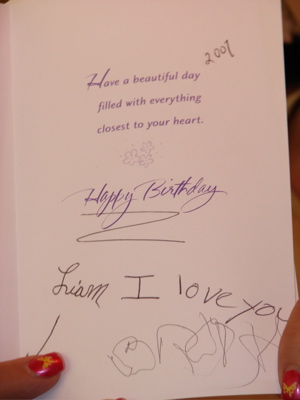 2007
Have a beautiful day
filled with everything
closest to your heart.
Happy Birthday
Liam I love you